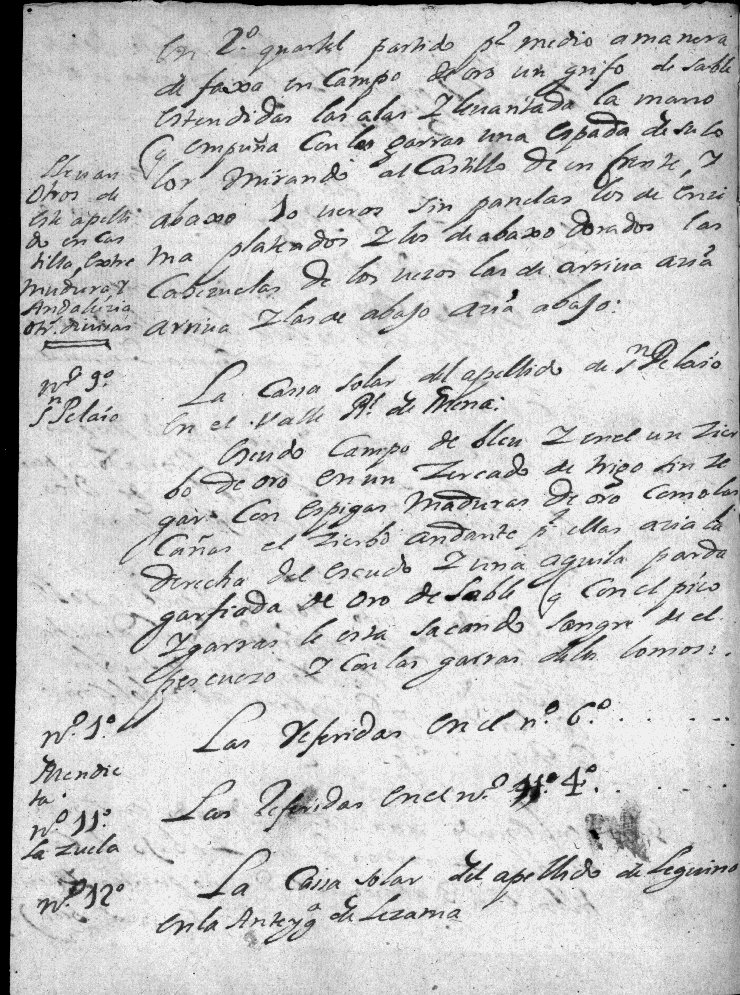 En 2.º quartel partido pr medio a manera
de faxa en Campo de oro un grifo de sable
estendidas las alas Y levantada la mano
q empuña Con las garras una espada de su co
lor mirando al Castillo de en frente, Y
abaxo 10 veros sin panelas los de Enzi
ma plateados Y los de abaxo dorados las
Cabezuelas de los veros las de arriva azia
arriva Y las de abajo azia abajo:
Llevan
Otros de
este apelli
do en Cas
tilla, Extre
madura Y
Andaluzia
otr. divisas
nº 9º
Sn Pelaio
La Cassa solar del apellido de Sn Pelaio
En el Valle Rl. de Mena:
Escudo Campo de bleu Y en el un Zier
bo de oro en un Zercado de trigo sin se
gar Con Espigas maduras de oro Como las
Cañas el Zierbo andante pr ellas azia la
derecha del escudo Y una aguila parda
garfiada de oro de Sable q Con el pico
Y garras le esta sacando sangre de el
pescuezo Y Con las garras de los lomos:.
nº 1º
Mendie
ta.
Las Referidas En el nº 6º . . . . .
nº 11º
La Zuela
Las Referidas en el nº 4º. . . . . .
nº 12º
La Cassa solar del apellido de Leguino
en la Anteyga de Lezama